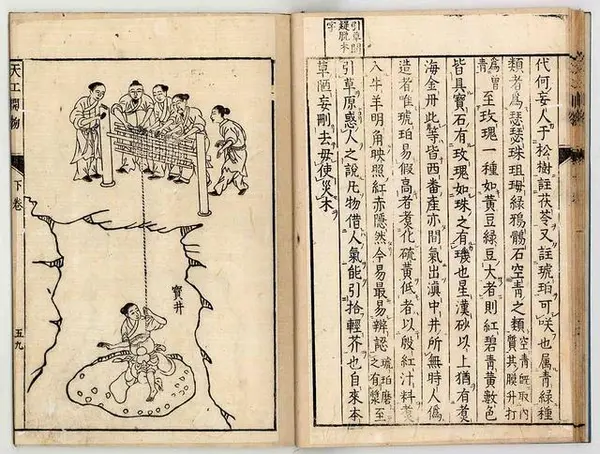 代何妄人于松樹註茯苓又註琥珀可咲也属青緑種
類者爲瑟瑟珠珇珻緑鴉鶻石空青之類
空青既取内
質其膜升打
爲曾
青
至玫瑰一種如黄豆緑豆大者則紅碧青黄數色
皆具寶石有玫瑰如珠之有璣也星漢砂以上猶有煮
海金丹此等皆西番産亦間氣出滇中井所無時人僞
造者唯琥珀易假高者煮化硫黄低者以殷紅汁料煮
入牛羊明角映照紅赤隱然今易最易辨認
琥珀磨
之有漿
至
引草原惑人之説凡物借人氣能引拾輕芥也自來本
草陋妄刪去毋使災木
引草
疑脱
字
天工開物
下卷
五九
寶井